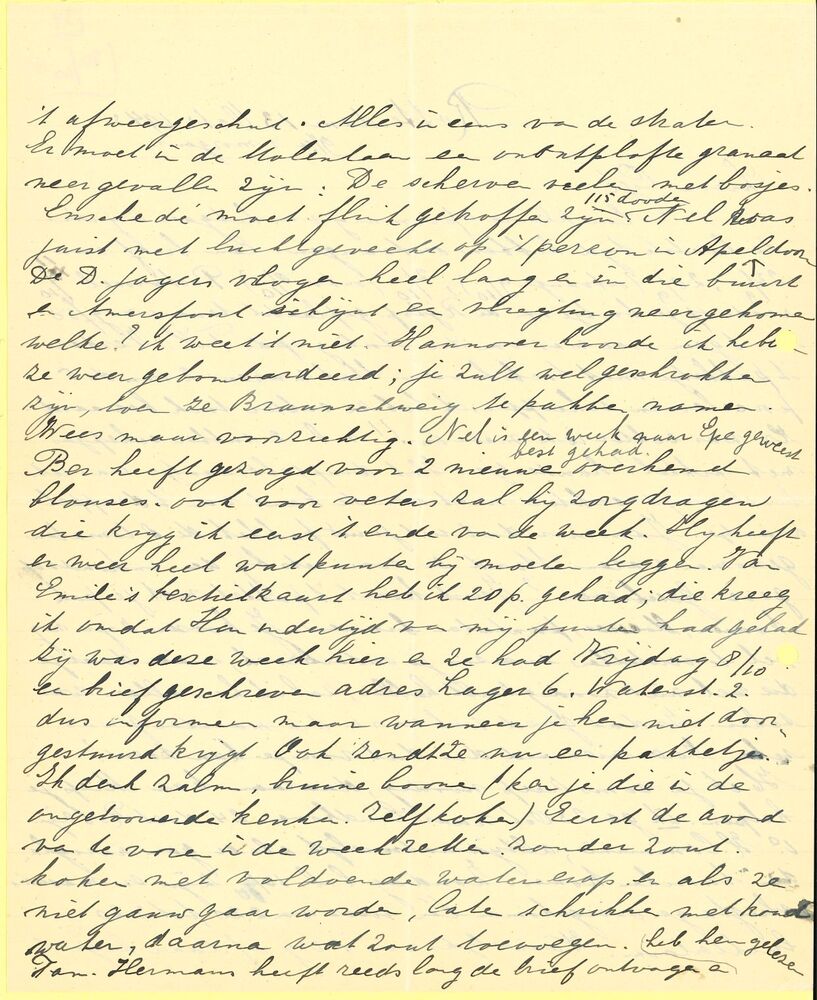 't afweergeschut. Alles in eens van de straten.
Er moet in de Molenlaan een onontplofte granaat
neergevallen zijn: De scherven vielen met bosjes.
115 doode
Enschedé moet flink getroffen zijn. Nel was
juist met luchtgevecht op 't perron in Apeldoorn
De D. jagers vlogen heel laag en in die buurt
en Amersfoort schijnt een vliegtuig neergekomen
welke? ik weet 't niet. Hannover hoorde ik hebben
ze weer gebombardeerd; je zult wel geschrokken
zijn, toen ze Braunschweig te pakken namen.
Wees maar voorzichtig. Nel is een week naar Epe geweest
best gehad.
Ber heeft gezorgd voor 2 nieuwe overhemd
blouses. ook voor veters zal hij zorgdragen
die kryg ik eerst 't einde van de week. Hy heeft
er weer heel wat punten bij moeten leggen. Van
Emile's textielkaart heb ik 20 p. gehad; die kreeg
ik omdat Han indertijd van mij punten had gehad
Zij was deze week hier en ze had Vrijdag 8/10
een brief geschreven adres Lager 6. Watenst. 2.
dus informeer maar wanneer je hem niet door-
gestuurd krijgt Ook zendt ze nu een pakketje.
Ik denk zalm, bruine boonen (kan je die in de
keuken. zelf koken) Eerst de avond
van te voren in de week zetten. zonder zout.
koken met voldoende water erop en als ze
niet gauw gaar worden, laten schrikken met koud
water, daarna wat zout toevoegen. heb hem gelezen
Fam. Hermans heeft reeds lang de brief ontvangen